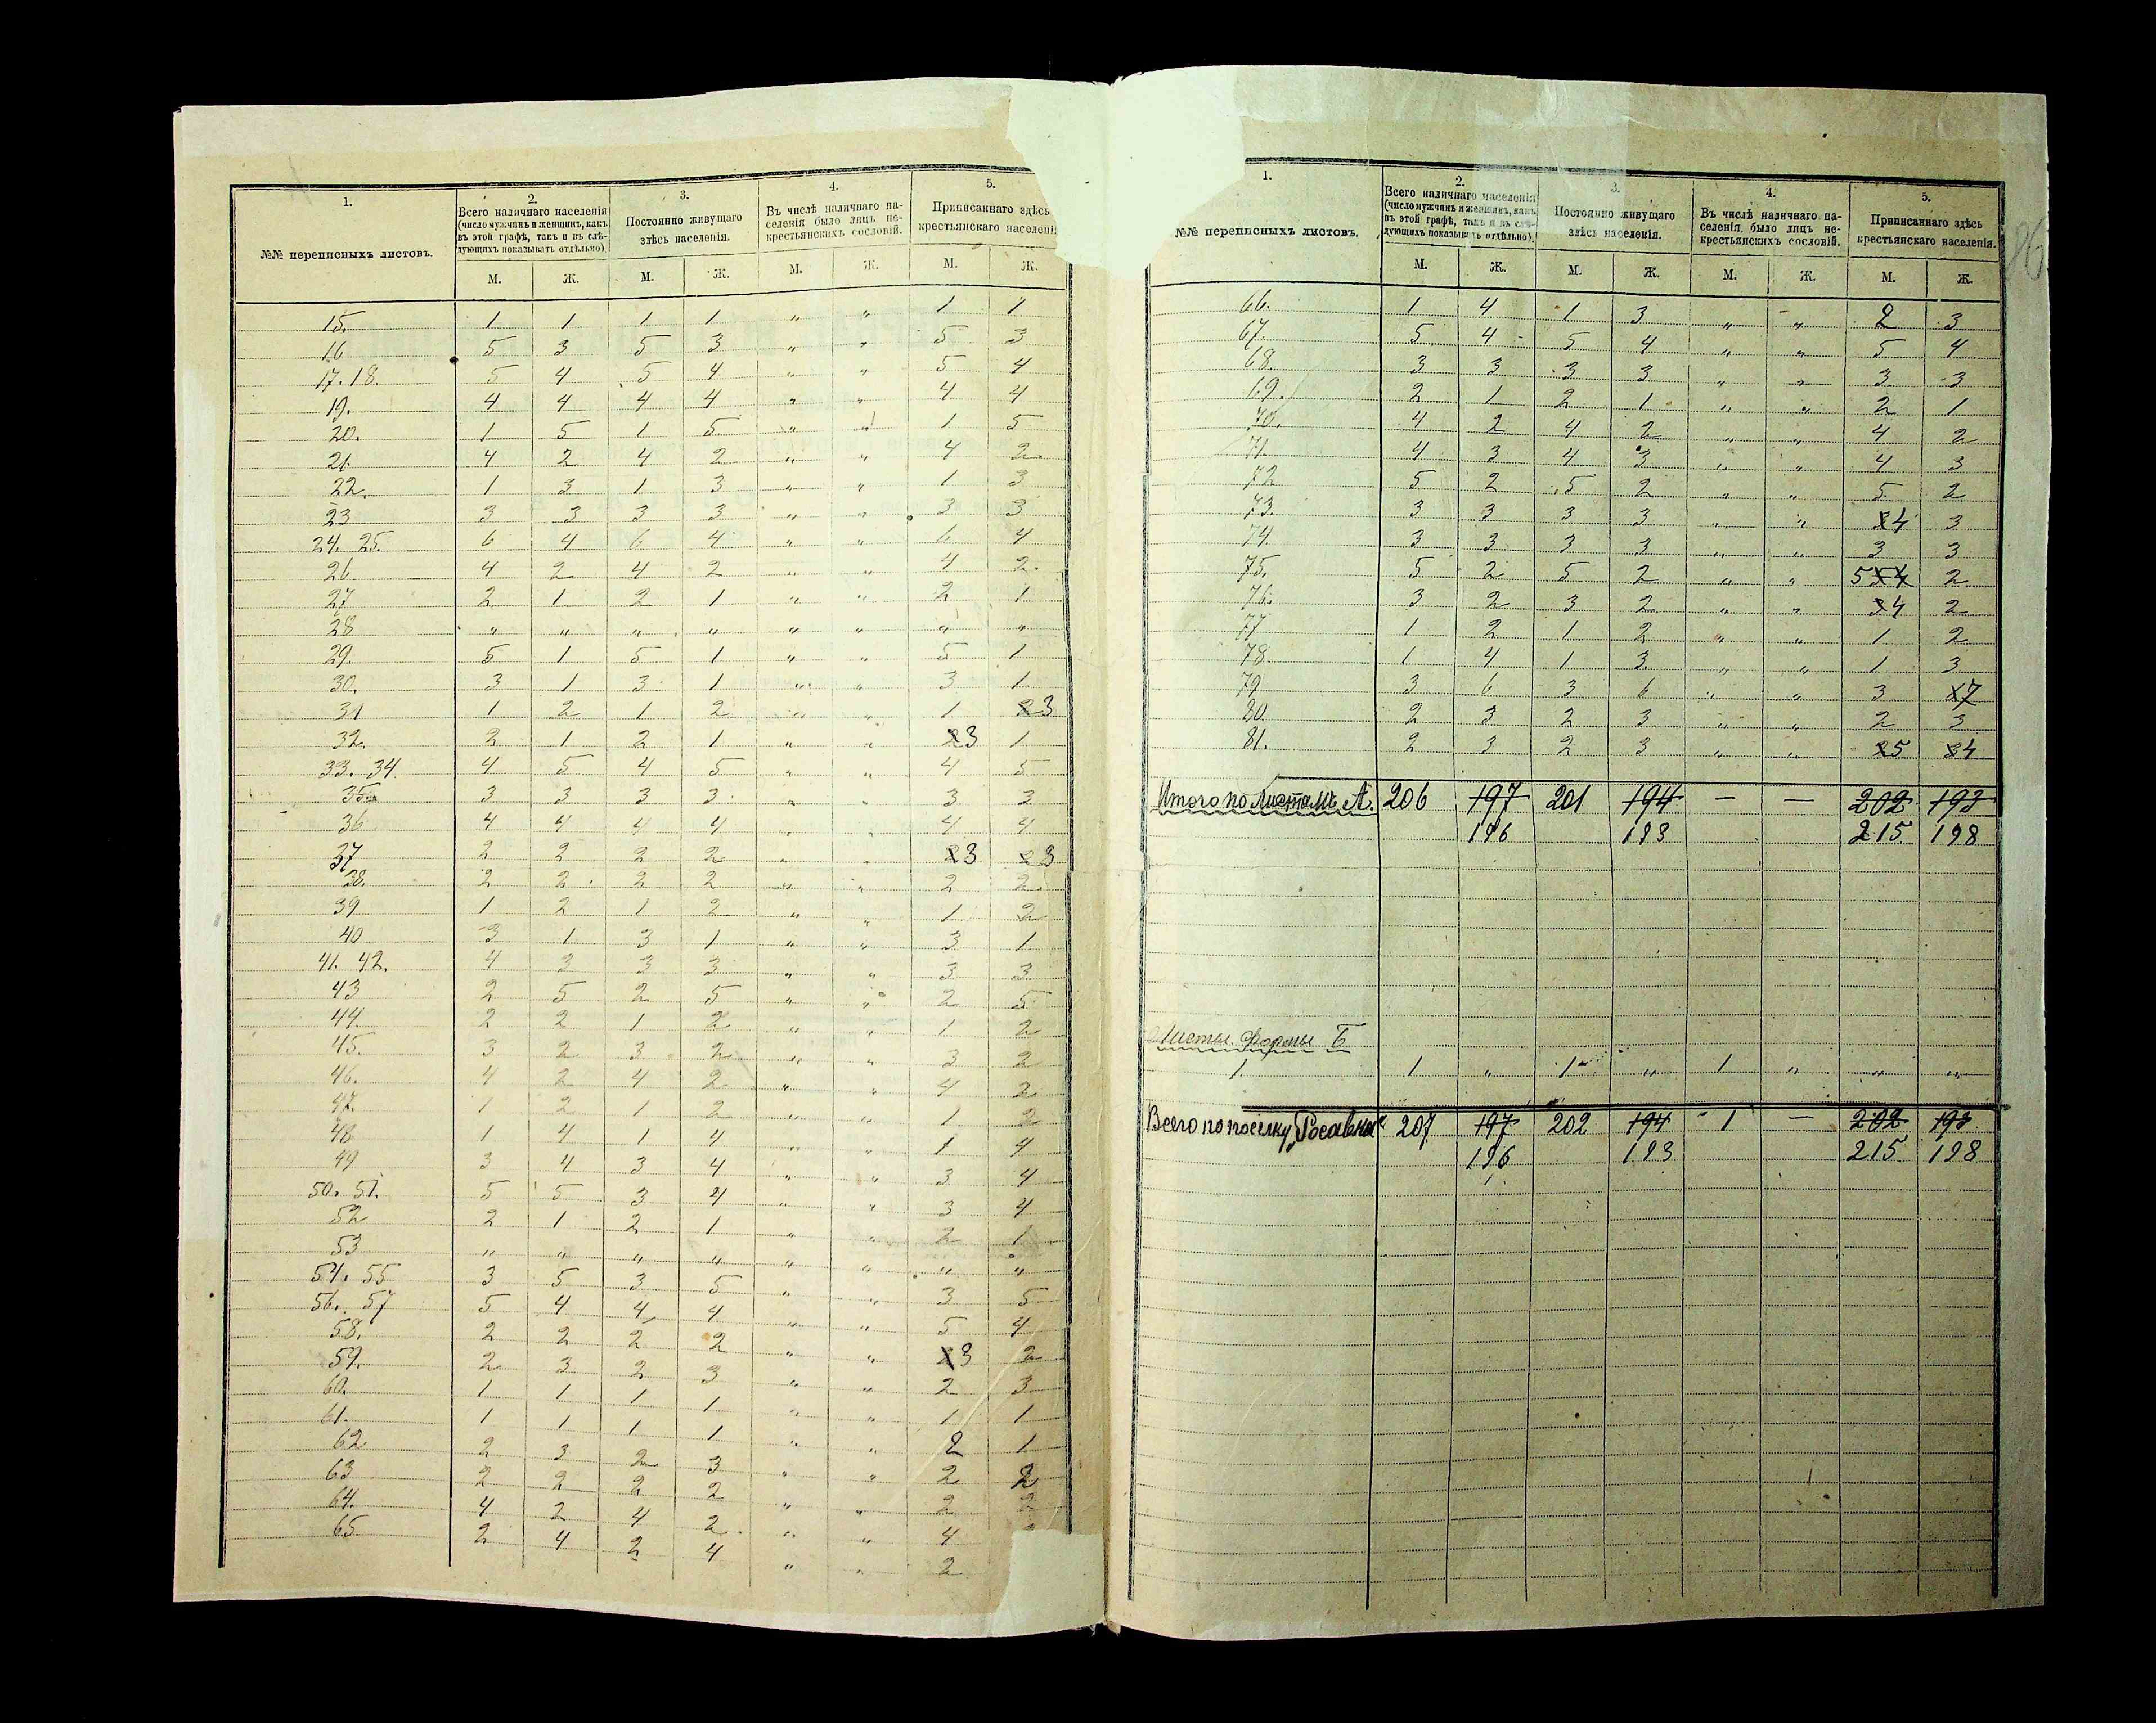 1. 2. 3. 4. 5.
№№ переписныхъ листовъ. Всего наличнаго населенія (число мужчинъ и женщинъ, какъ въ этой графѣ, такъ и въ слѣдующихъ показывать отдѣльно). Постоянно живущаго здѣсь населенія. Въ числѣ наличнаго населенія было лицъ некрестьянскихъ сословій. Приписаннаго здѣсь крестьянскаго населенія
М. Ж. М. Ж. М. Ж. М. Ж.
15. 1 1 1 1 " " 1 1
16 5 3 5 3 " " 5 3
17. 18. 5 4 5 4 " " 5 4
19. 4 4 4 4 " " 4 4
20. 1 5 1 5 " " 1 5
21. 4 2 4 2 " " 4 2
22. 1 3 1 3 " " 1 3
23 3 3 3 3 " " 3 3
24. 25. 6 4 6 4 " " 6 4
26. 4 2 4 2 " " 4 2
27 2 1 2 1 " " 2 1
28 " " " " " " " "
29. 5 1 5 1 " " 5 1
30. 3 1 3 1 " " 3 1
31 1 2 1 2 " " 1 2 3
32. 2 1 2 1 " " 2 3 1
33. 34. 4 5 4 5 " " 4 5
35. 3 3 3 3 " " 3 3
36 4 4 4 4 " " 4 4
37 2 2 2 2 " " 2 3 2 3
38. 2 2 2 2 " " 2 2
39 1 2 1 2 " " 1 2
40 3 1 3 1 " " 3 1
41. 42. 4 3 3 3 " " 3 3
43 2 5 2 5 " " 2 5
44. 2 2 1 2 " " 1 2
45. 3 2 3 2 " " 3 2
46. 4 2 4 2 " " 4 2
47. 1 2 1 2 " " 1 2
48 1 4 1 4 " " 1 4
49 3 4 3 4 " " 3 4
50. 51. 5 5 3 4 " " 3 4
52 2 1 2 1 " " 2 1
53 " " " " " " " "
54. 55 3 5 3 5 " " 3 5
56. 57 5 4 4 4 " " 5 4
58. 2 2 2 2 " " 2 3 2
59. 2 3 2 3 " " 2 3
60. 1 1 1 1 " " 1 1
61. 1 1 1 1 " " 2 1
62 2 3 2 3 " " 2 2
63 2 2 2 2 " " 2 2
64. 4 2 4 2 " " 4
65. 2 4 2 4 " " 2
1. 2. 3. 4. 5.
№№ переписныхъ листовъ. Всего наличнаго населенія (число мужчинъ и женщинъ, какъ въ этой графѣ, такъ и въ слѣдующихъ показывать отдѣльно). Постоянно живущаго здѣсь населенія. Въ числѣ наличнаго населенія было лицъ некрестьянскихъ сословій. Приписаннаго здѣсь крестьянскаго населенія.
М. Ж. М. Ж. М. Ж. М. Ж.
66. 1 4 1 3 " " 2 3
67. 5 4 5 4 " " 5 4
68. 3 3 3 3 " " 3 3
69. 2 1 2 1 " " 2 1
70. 4 2 4 2 " " 4 2
71. 4 3 4 3 " " 4 3
72 5 2 5 2 " " 5 2
73. 3 3 3 3 " " 4 3
74. 3 3 3 3 " " 3 3
75. 5 2 5 2 " " 5 5 4 2
76. 3 2 3 2 " " 3 4 2
77 1 2 1 2 " " 1 2
78. 1 4 1 3 " " 1 3
79 3 6 3 6 " " 3 7
80. 2 3 2 3 " " 2 3
81. 2 3 2 3 " " 2 5 3 4
Итого по листамъ А. 206 197 201 194 — — 202 193
196 193 215 198
Листы формы Б
1 1 " 1 " 1 " " "
Всего по поселку „Росавка" 207 197 202 194 1 — 202 193
196 193 215 198